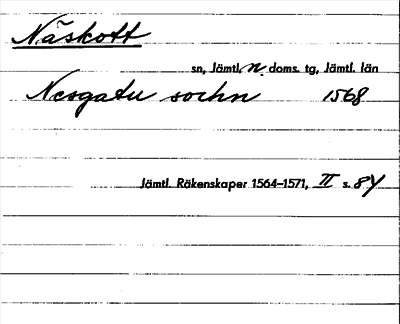 Näskott
sn, Jämtl. n. doms. tg, Jämtl. län
Nesgatu sochn 1568
Jämtl. Räkenskaper 1564-1571, II s. 84